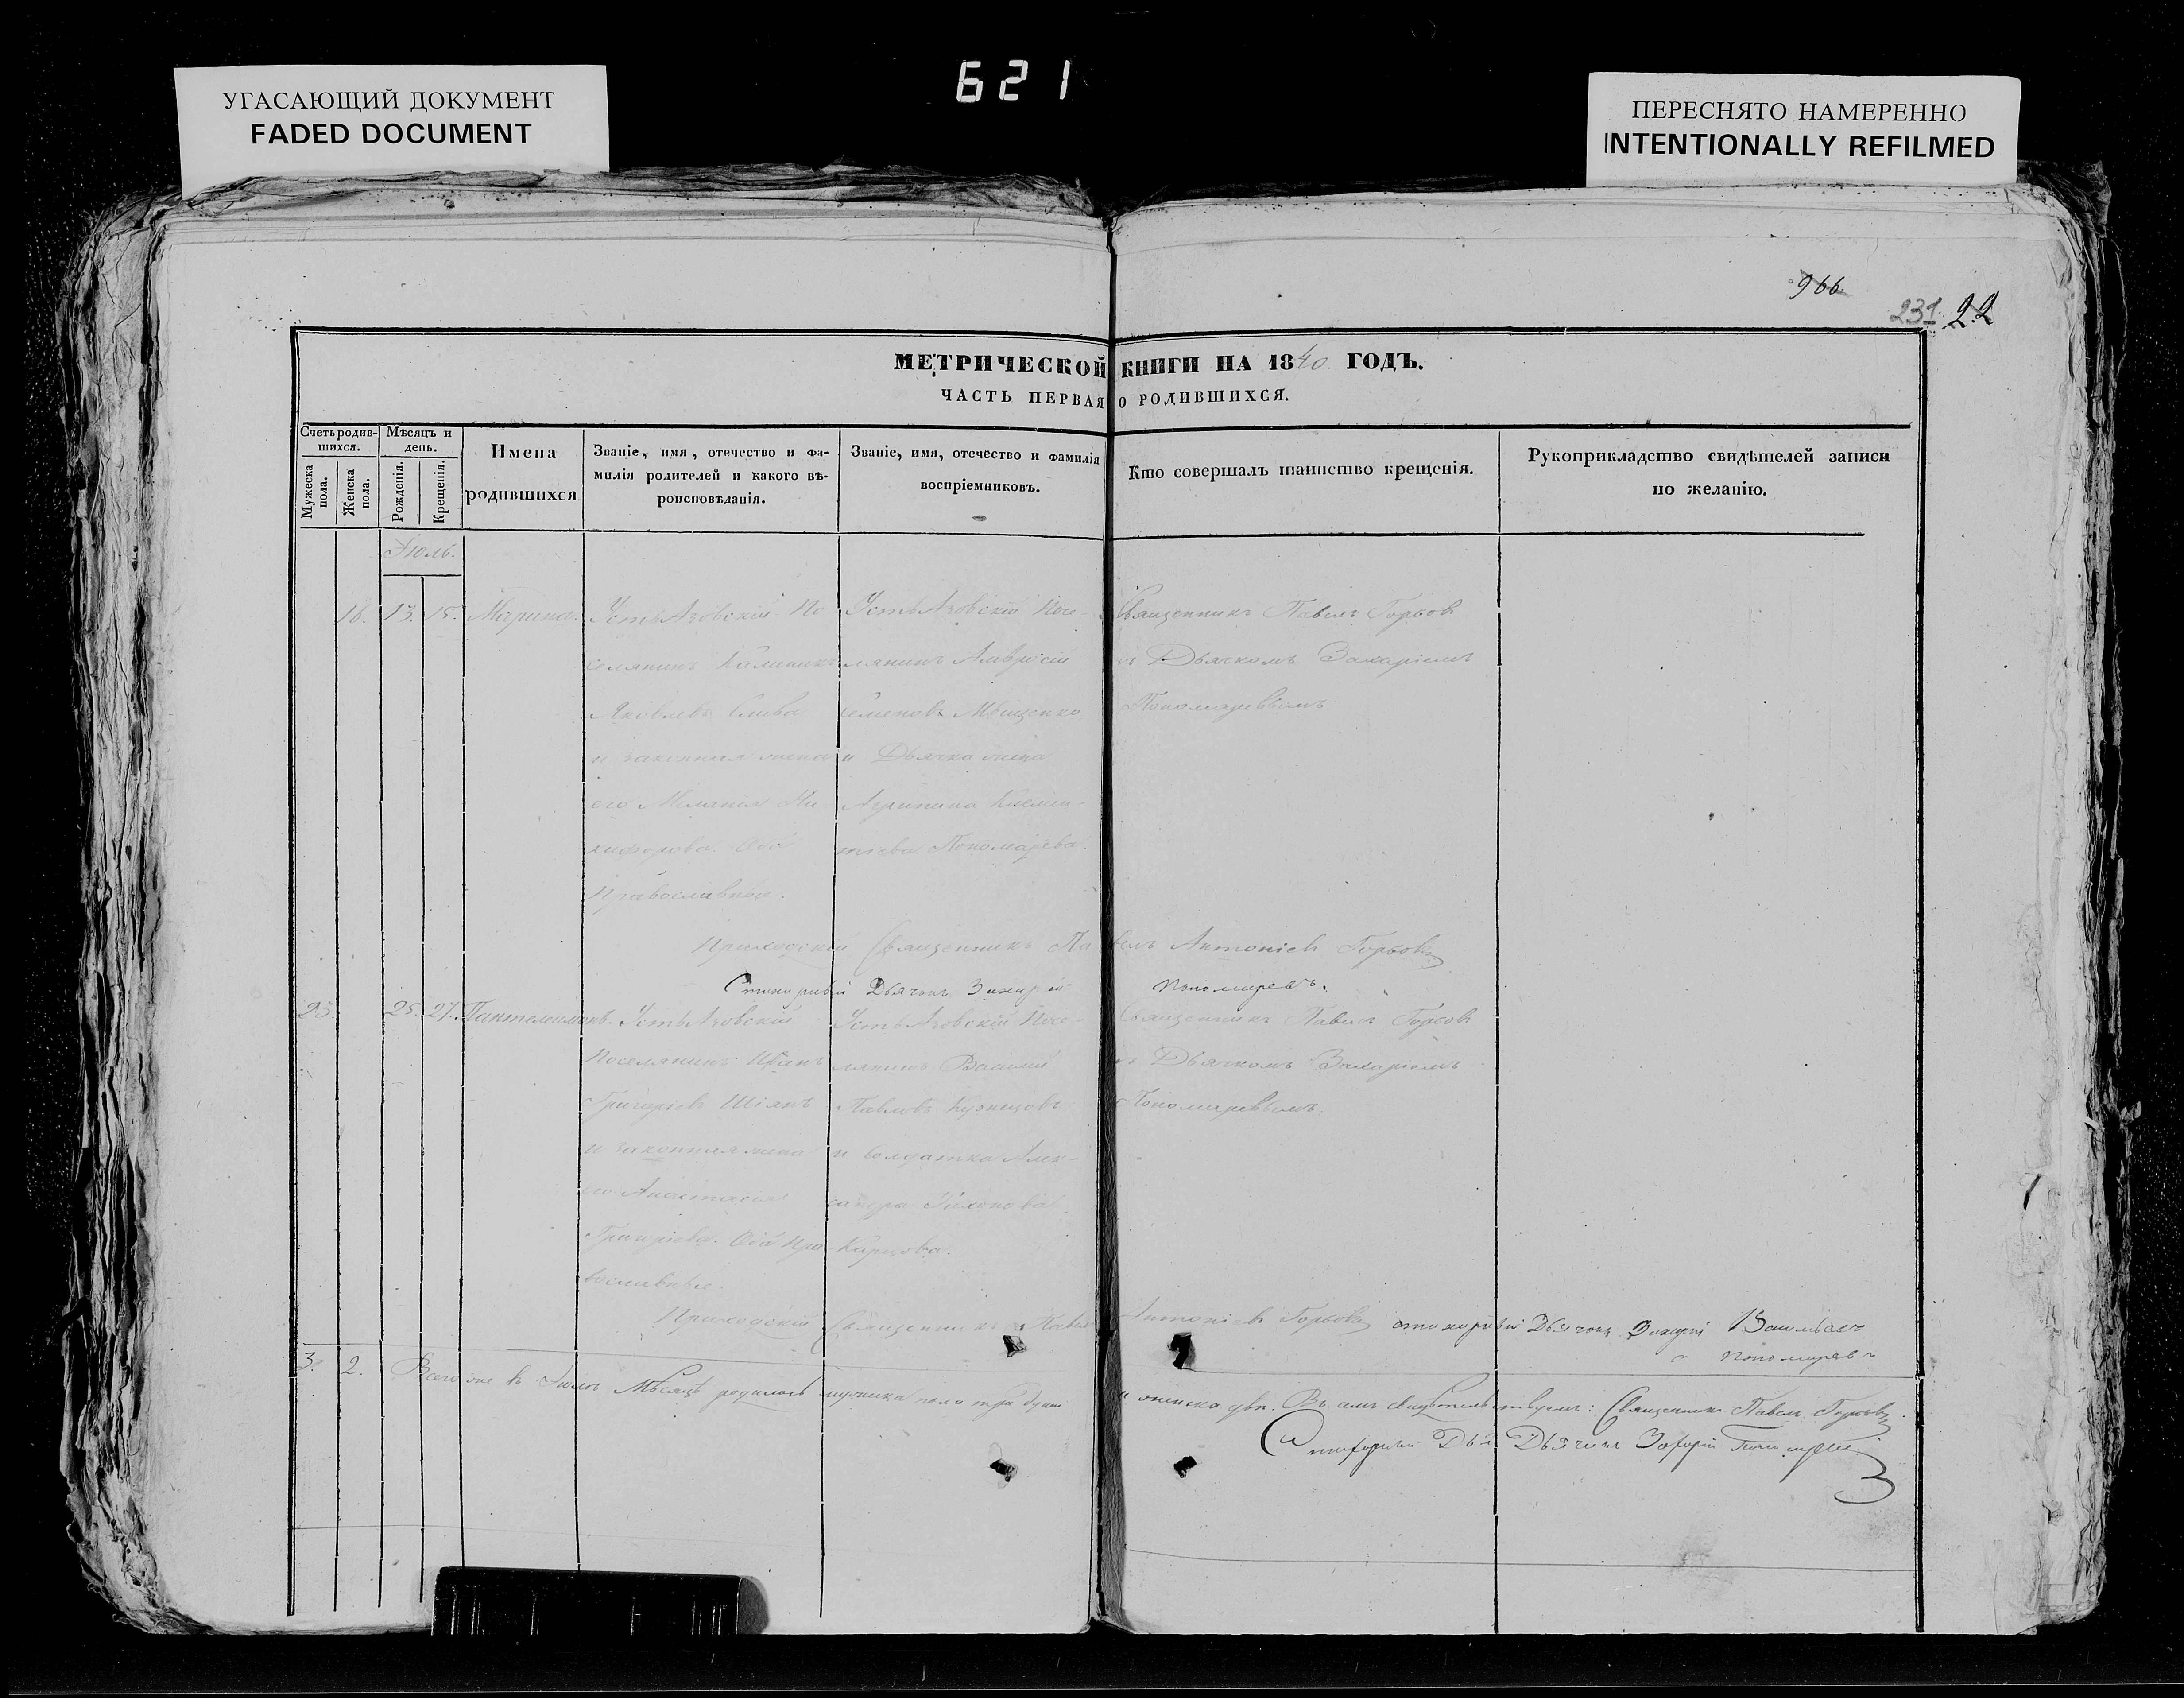 УГАСАЮЩИЙ ДОКУМЕНТ
FADED DOCUMENT
621
ПЕРЕСНЯТО НАМЕРЕННО
INTENTIONALLY REFILMED
966
231 22
МЕТРИЧЕСКОЙ КНИГИ НА 1840 ГОДЪ.
ЧАСТЬ ПЕРВАЯ О РОДИВШИХСЯ.
Счетъ родив-
шихся.
Мужеска
пола.
Женска
пола.
Мѣсяцъ и
день.
Рожденія.
Крещенія.
Имена
родившихся
Званіе, имя, отечество и фа-
милія родителей и какого вѣ-
роисповѣданія.
Званіе, имя, отечество и фамилія
воспріемниковъ.
Кто совершалъ таинство крещенія.
Рукоприкладство свидѣтелей записи
по желанію.
Іюль.
16. 13. 15. Марина.
УстьАзовскій По
селянинъ Калиникъ
Яковлевъ Слива
и законная жена
его Меланія Ни
кифорова. Оба
Православные.
УстьАзовскій Посе-
лянинъ Амвросій
Семеновъ Мищенко
и Дьячка жена
Агрипина Климен-
тіева Пономарева.
Священникъ Павелъ Горбовъ
съ Дьячкомъ Захаріемъ
Пономаревымъ.
Приходскій Священникъ Павелъ Антоніевъ Горбовъ
Дьячокъ Захарій Пономаревъ.
23. 25. 27. Пантелеимонъ.
УстьАзовскій
Поселянинъ Иванъ
Григоріевъ Шіянъ
и законная жена
его Анастасія
Григоріева. Оба Пра-
вославные.
УстьАзовскій Посе-
лянинъ Василій
Павловъ Кузнецовъ
и солдатка Алек-
сандра Тихонова
Карпова.
Священникъ Павелъ Горбовъ
съ Дьячкомъ Захаріемъ
Пономаревымъ.
Приходскій Священникъ Павелъ Антоніевъ Горбовъ Дьячокъ Захарій Васильевъ
Пономаревъ
3. 2. Всего же въ Іюлѣ Мѣсяцѣ родилось мужеска пола три души и женска двѣ. Въ чемъ свидѣтельствуемъ: Священникъ Павелъ Горбовъ.
Дьячокъ Захарій